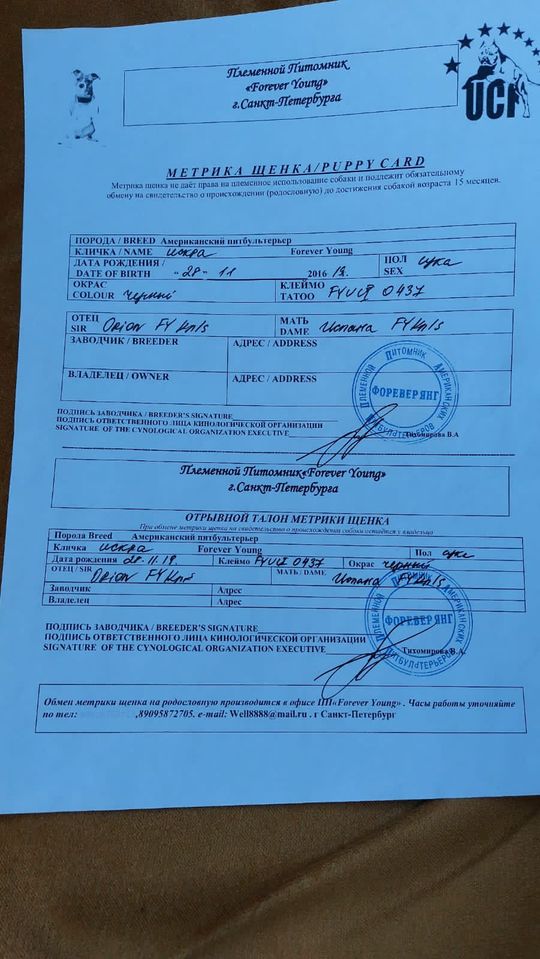 Племенной Питомник
«Forever Young»
г.Санкт-Петербурга
UCI
МЕТРИКА ЩЕНКА/PUPPY CARD
Метрика щенка не даёт права на племенное использование собаки и подлежит обязательному
обмену на свидетельство о происхождении (родословную) до достижения собакой возраста 15 месяцев.
ПОРОДА / BREED Американский питбультерьер
КЛИЧКА / NAME искра Forever Young
ДАТА РОЖДЕНИЯ / DATE OF BIRTH "28" 11 2016 ПОЛ SEX сука
ОКРАС COLOUR черный КЛЕЙМО TATOO FYUCI 0437
ОТЕЦ SIR Orion FY Knls МАТЬ DAME Испана FY Knls
ЗАВОДЧИК / BREEDER АДРЕС / ADDRESS
ВЛАДЕЛЕЦ / OWNER АДРЕС / ADDRESS
ПЛЕМЕННОЙ ПИТОМНИК АМЕРИКАНСКИХ ПИТБУЛЬТЕРЬЕРОВ
ФОРЕВЕР ЯНГ
ПОДПИСЬ ЗАВОДЧИКА / BREEDER'S SIGNATURE
ПОДПИСЬ ОТВЕТСТВЕННОГО ЛИЦА КИНОЛОГИЧЕСКОЙ ОРГАНИЗАЦИИ
SIGNATURE OF THE CYNOLOGICAL ORGANIZATION EXECUTIVE Тихомирова В.А
Племенной Питомник«Forever Young»
г.Санкт-Петербурга
ОТРЫВНОЙ ТАЛОН МЕТРИКИ ЩЕНКА
При обмене метрики щенка на свидетельство о происхождении собаки остаётся у владельца
Порода Breed Американский питбультерьер
Кличка искра Forever Young Пол сука
Дата рождения 28.11.19. Клеймо FYUCI 0437 Окрас черный
ОТЕЦ / SIR Orion FY Knls МАТЬ / DAME Испана FY Knls
Заводчик Адрес
Владелец Адрес
ПЛЕМЕННОЙ ПИТОМНИК АМЕРИКАНСКИХ ПИТБУЛЬТЕРЬЕРОВ
ФОРЕВЕР ЯНГ
ПОДПИСЬ ЗАВОДЧИКА / BREEDER'S SIGNATURE
ПОДПИСЬ ОТВЕТСТВЕННОГО ЛИЦА КИНОЛОГИЧЕСКОЙ ОРГАНИЗАЦИИ
SIGNATURE OF THE CYNOLOGICAL ORGANIZATION EXECUTIVE Тихомирова В.А.
Обмен метрики щенка на родословную производится в офисе ПП«Forever Young» . Часы работы уточняйте
по тел: ,89095872705. e-mail: Well8888@mail.ru . г Санкт-Петербург